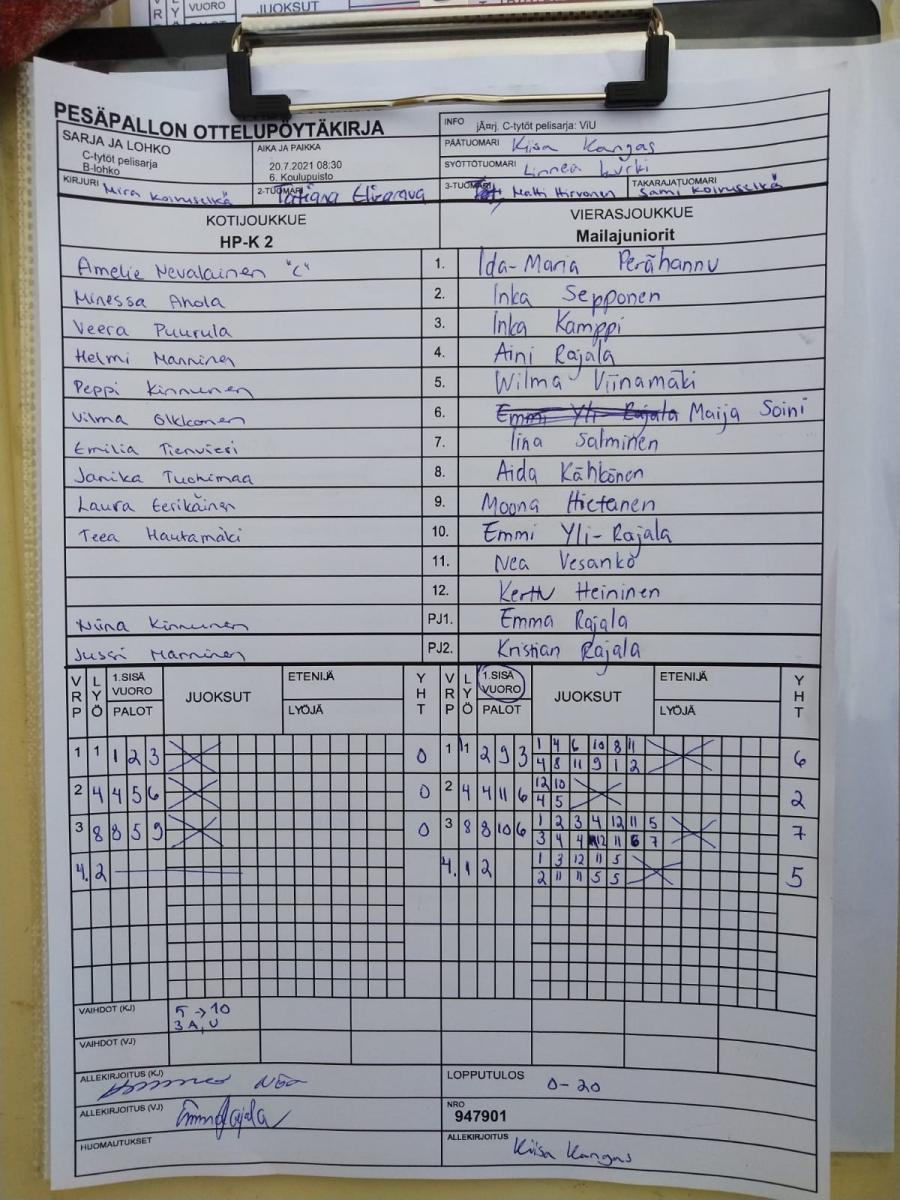 VUORO
JUOKSUT
PESÄPALLON OTTELUPÖYTÄKIRJA
SARJA JA LOHKO
C-tytöt pelisarja
B-lohko
AIKA JA PAIKKA
20.7.2021 08:30
6. Koulupuisto
INFO jÃ¤rj. C-tytöt pelisarja: ViU
PÄÄTUOMARI Kiisa Kangas
SYÖTTÖTUOMARI Linnea Lurki
KIRJURI Mira Koivuselkä
2-TUOMARI Tatiana Elizarova
3-TUOMARI Matti Hirvonen
TAKARAJATUOMARI Sami Koivuselkä
KOTIJOUKKUE
HP-K 2
VIERASJOUKKUE
Mailajuniorit
Amelie Nevalainen "C" 1. Ida-Maria Perähannu
Minessa Ahola 2. Inka Sepponen
Veera Puurula 3. Inka Kamppi
Helmi Manninen 4. Aini Rajala
Peppi Kinnunen 5. Wilma Viinamäki
Vilma Olkkonen 6. Emmi Yli-Rajala Maija Soini
Emilia Tienvieri 7. Iina Salminen
Janika Tuohimaa 8. Aida Kähkönen
Laura Eerikäinen 9. Moona Hietanen
Teea Hautamäki 10. Emmi Yli-Rajala
11. Nea Vesanko
12. Kerttu Heininen
Niina Kinnunen PJ1. Emma Rajala
Jussi Manninen PJ2. Kristian Rajala
VRP LYÖ 1.SISÄ VUORO PALOT JUOKSUT ETENIJÄ LYÖJÄ YHT VRP LYÖ 1.SISÄ VUORO PALOT JUOKSUT ETENIJÄ LYÖJÄ YHT
1 1 1 2 3 0 1 1 2 9 3 1 4 6 10 8 11 6
4 8 11 9 1 2
2 4 4 5 6 0 2 4 4 11 6 12 10 2
4 5
3 8 8 5 9 0 3 8 8 10 6 1 2 3 4 12 11 5 7
3 4 4 12 11 6 7
4. 2 4. 1 2 1 3 12 11 5 5
2 11 11 5 5
VAIHDOT (KJ) 5 → 10
3 A, U
VAIHDOT (VJ)
ALLEKIRJOITUS (KJ)
LOPPUTULOS 0-20
ALLEKIRJOITUS (VJ) Emma Rajala
NRO
947901
HUOMAUTUKSET
ALLEKIRJOITUS Kiisa Kangas